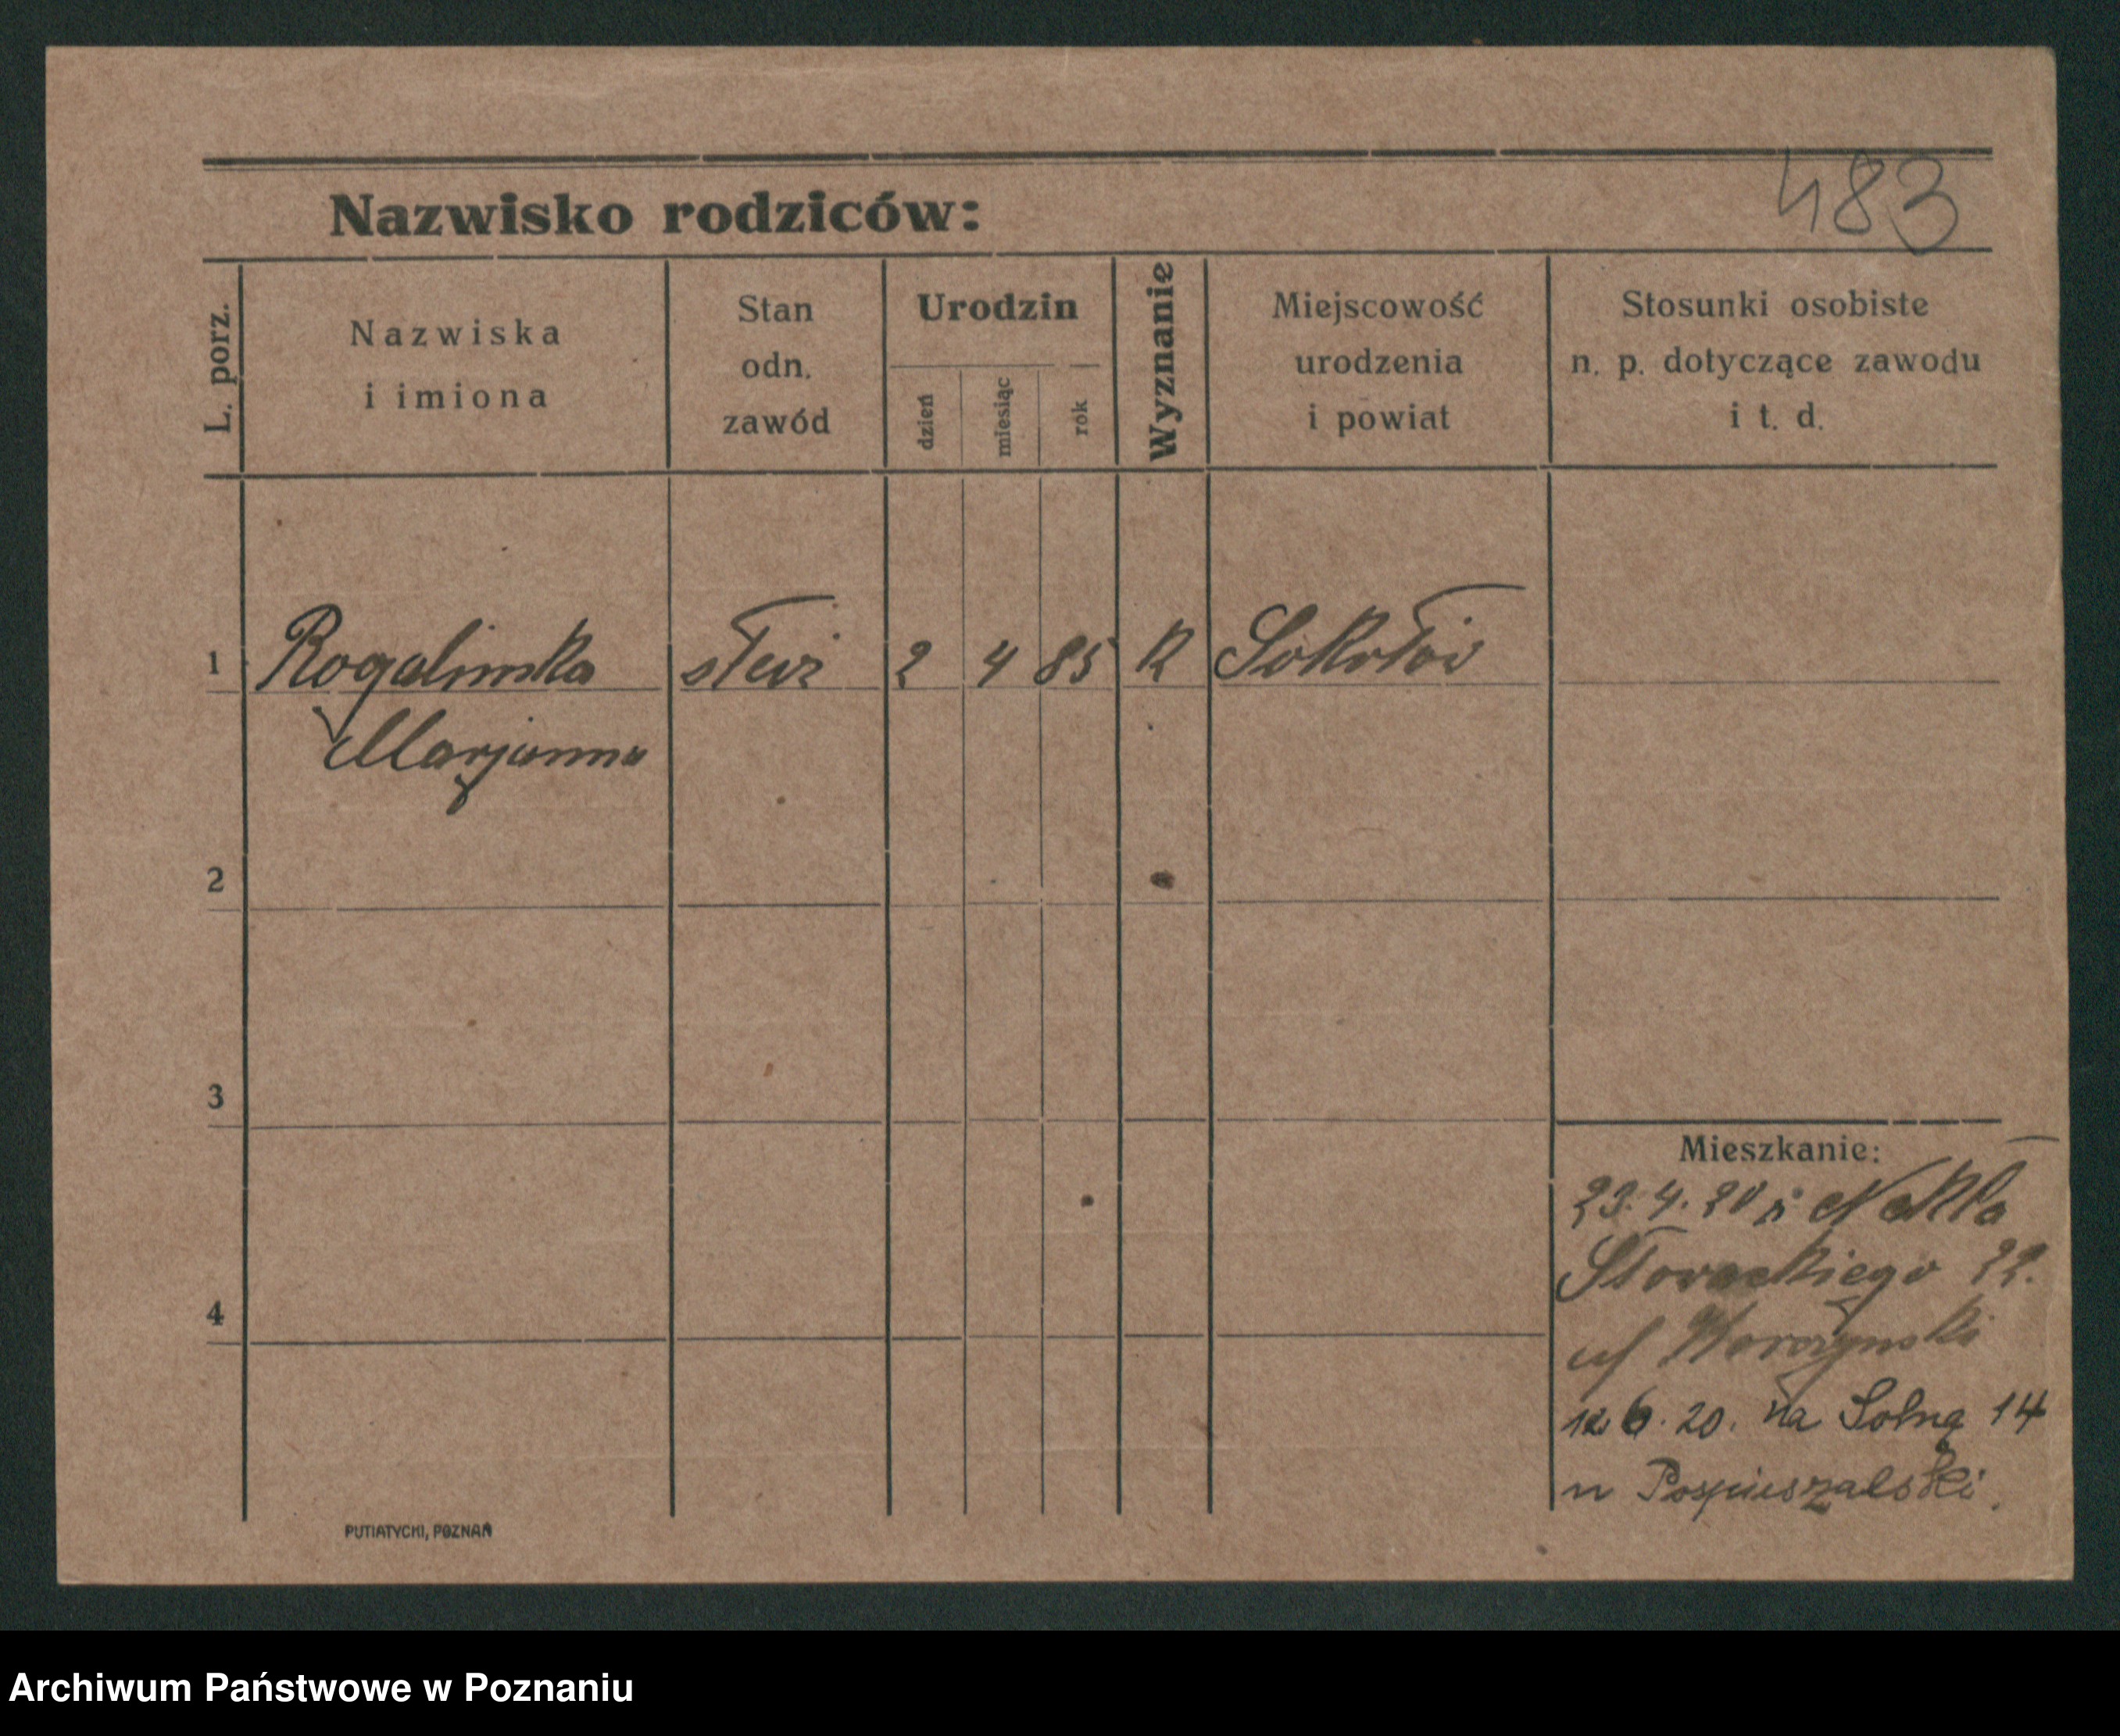 483
Nazwisko rodziców:
L. porz.
Nazwiska
i imiona
Stan
odn.
zawód
Urodzin
dzień
miesiąc
rok
Wyznanie
Miejscowość
urodzenia
i powiat
Stosunki osobiste
n. p. dotyczące zawodu
i t. d.
1 Rogalinska 2 4 85 K Sokołów
Marjanna
2
3
4
Mieszkanie:
23.4.20 z Nakła
Słowackiego 22.
12.6.20. na Solną 14
u Pospieszalski.
PUTIATYCKI, POZNAŃ
Archiwum Państwowe w Poznaniu